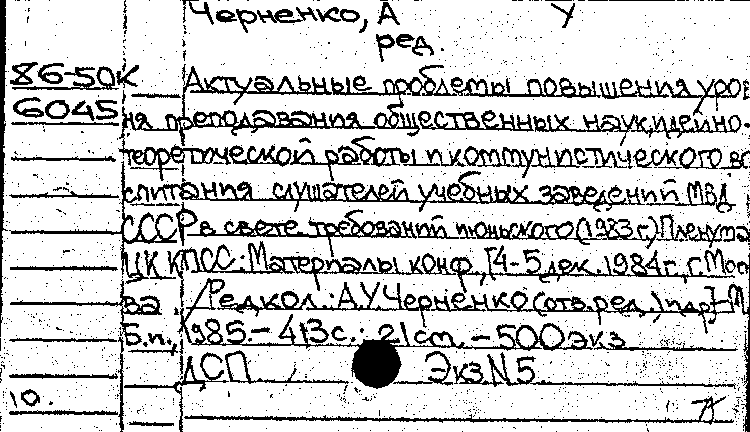 Черненко, А У
ред.
86-50К Актуальные проблемы повышения уров
6045 ня преподавания общественных наук, идейно-
теоретической работы и коммунистического во
спитания слушателей учебных заведений МВД
СССР в свете требований июньского (1983 г.) Пленума
ЦК КПСС: Материалы конф., [4-5 дек. 1984 г., г. Моск
ва. / Редкол.: А.У. Черненко (отв. ред.) и др.] - М
Б.и., 1985. - 413 с.; 21 см. - 500 экз
ДСП Экз N5
10.